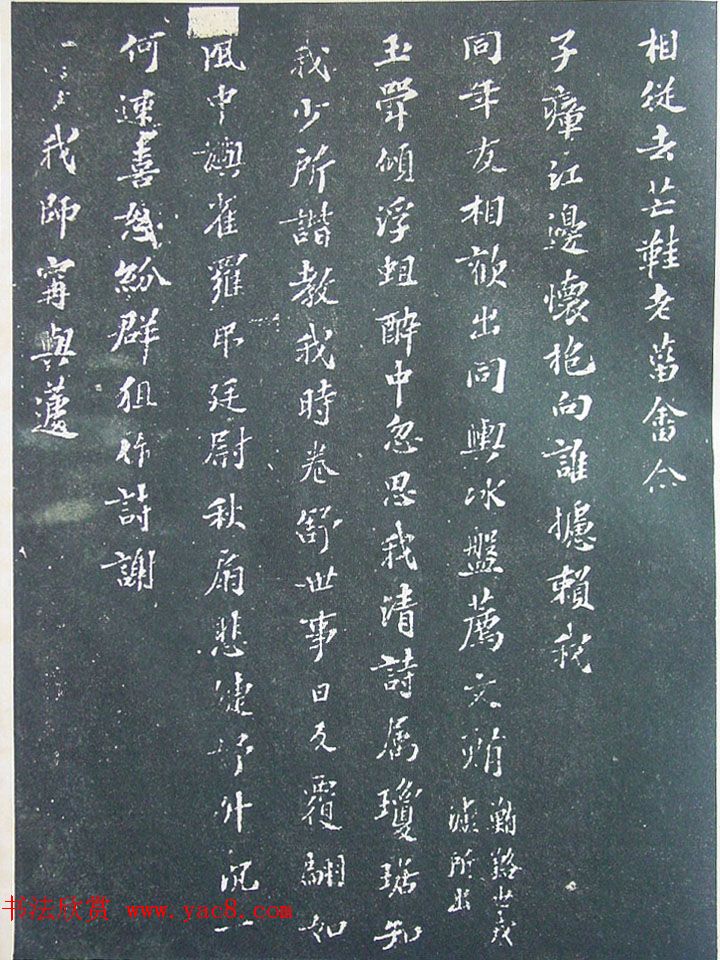 相從去芒鞋老菑畬念
子瘴江邊懷抱向誰攄賴我
同年友相歡出同輿冰盤薦文鮪
鮪路
所出
玉斝傾浮蛆醉中忽思我清詩屬瓊琚知
我少所諧教我時卷舒世事日反覆翩如
風中旟雀羅弔廷尉秋扇悲婕妤升沉一
何速喜怒紛群狙作詩謝
我師甯與蘧
书法欣赏 www.yac8.com